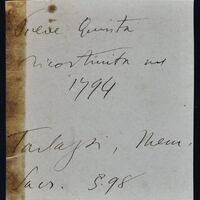 Pieve Quinta
ricostruita nel
1794
Tarlazzi, Mem.
Sacr. 398